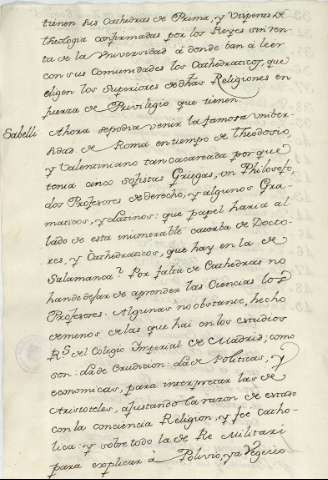 tienen sus Cathedras de Prima, y Visperas de
theologia confirmadas por los Reyes con ren-
ta de la Universidad á donde ban á leer
con sus Comunidades los Cathedraticos, que
eligen los Superiores de dhas Religiones en
fuerza de Privilegio que tienen
Sabelli
Ahora podia venir la famosa Univer-
sidad de Roma en tiempo de theodosio,
y Valentiniano tan cacareada por que
tenia cinco sofistas Griegos, un Philosofo,
dos Profesores de derecho, y algunos Gra-
maticos, y Latinos: que papel haria al
lado de esta inumerable de Docto-
res, y Cathedraticos, que hay en la de
Salamanca? Por falta de Cathedras no
han de dejar de aprender las Ciencias los
Profesores. Algunas no obstante, hecho
de menos de las que hai en los estudios
Rs del Colegio Imperial de Madrid, como
son: la de erudicion: la de Politicas, y
economicas, para interpretar las de
Aristoteles, ajustando la razon de estado
con la conciencia Religion, y fee Catho-
lica: y sobre todo la de Re Militari
para explicar á Polivio, y a Vegecio